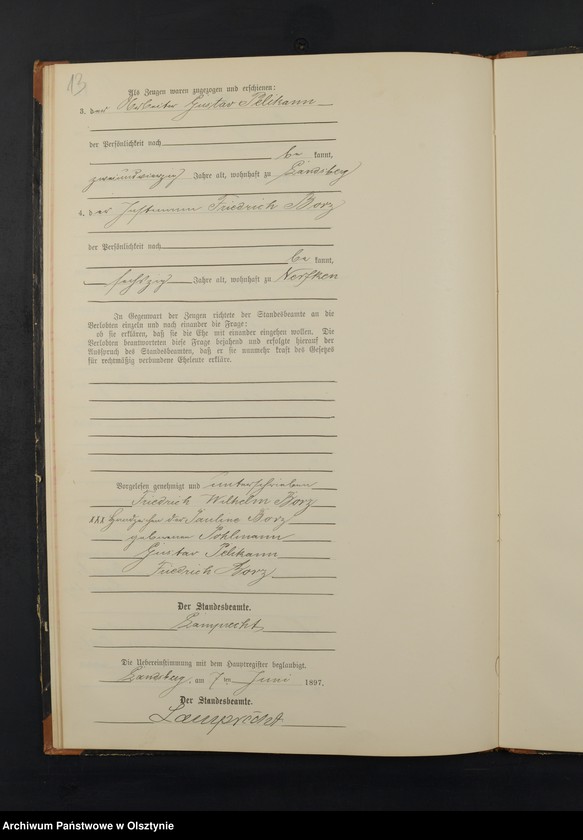 13
Als Zeugen waren zugezogen und erschienen:
3. der Arbeiter Gustav Pelikann
der Persönlichkeit nach
be kannt,
zweiundvierzig Jahre alt, wohnhaft zu Landsberg
4. der Instmann Friedrich Borz
der Persönlichkeit nach
be kannt,
sechszig Jahre alt, wohnhaft zu Nerfken
In Gegenwart der Zeugen richtete der Standesbeamte an die
Verlobten einzeln und nach einander die Frage:
ob sie erklären, daß sie die Ehe mit einander eingehen wollen. Die
Verlobten beantworteten diese Frage bejahend und erfolgte hierauf der
Ausspruch des Standesbeamten, daß er sie nunmehr kraft des Gesetzes
für rechtmäßig verbundene Eheleute erkläre.
Vorgelesen, genehmigt und unterschrieben
Friedrich Wilhelm Borz
XXX Handzeichen der Pauline Borz
geborenen Pohlmann
Gustav Pelikann
Friedrich Borz
Der Standesbeamte.
Lamprecht
Die Uebereinstimmung mit dem Hauptregister beglaubigt.
Landsberg, am 7ten Juni 1897.
Der Standesbeamte.
Lamprecht
Archiwum Państwowe w Olsztynie